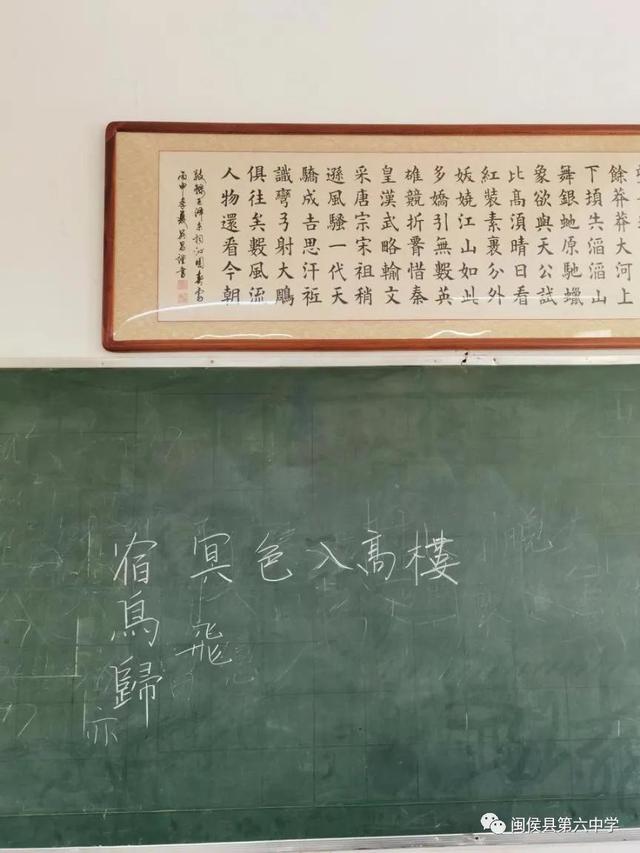 餘莽莽大河上
下頓失滔滔山
舞銀虵原馳蠟
象欲與天公試
比高須晴日看
紅裝素裹分外
妖嬈江山如此
多嬌引無數英
雄競折腰惜秦
皇漢武略輸文
采唐宗宋祖稍
遜風騷一代天
驕成吉思汗祗
識彎弓射大鵰
俱往矣數風流
人物還看今朝
敬錄毛澤東詞沁園春雪
丙申季夏謹書
冥色入高樓
宿鳥歸
飛
亦
晚
闽侯县第六中学